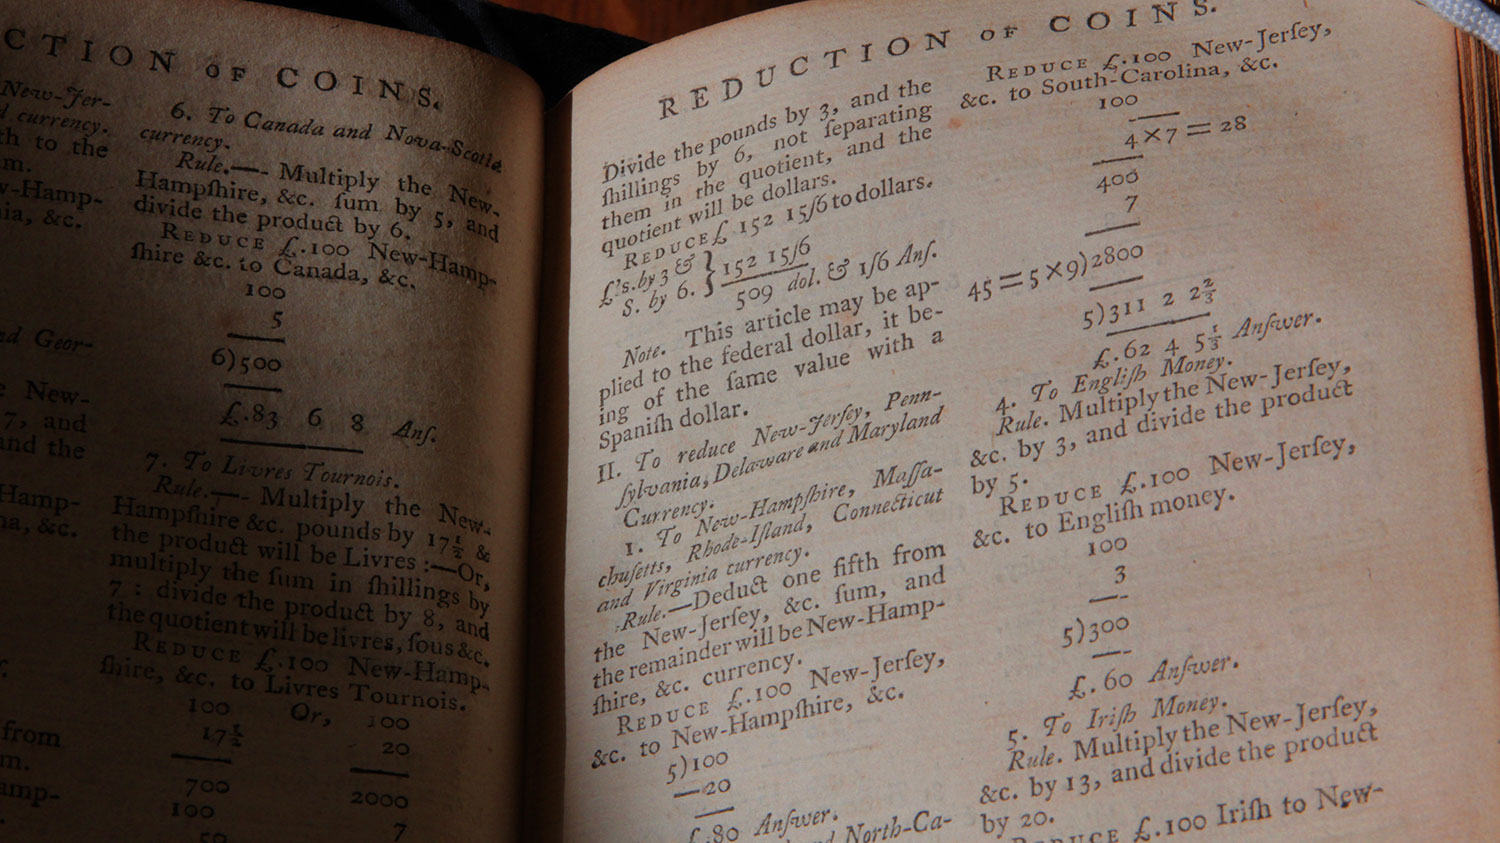 CTION OF COINS.
New-Jer-
d currency.
th to the
m.
w-Hamp-
ia, &c.
nd Geor-
New-
7, and
and the
Hamp-
na, &c.
from
m.
amp-
6. To Canada and Nova-Scotia
currency.
Rule.—- Multiply the New-
Hampſhire, &c. ſum by 5, and
divide the product by 6.
REDUCE £.100 New-Hamp-
ſhire &c. to Canada, &c.
100
5
6)500
£.83 6 8 Anſ.
7. To Livres Tournois.
Rule.—- Multiply the New-
Hampſhire &c. pounds by 17½ &
the product will be Livres :—Or,
multiply the ſum in ſhillings by
7 : divide the product by 8, and
the quotient will be livres, ſous &c.
REDUCE £.100 New-Hamp-
ſhire, &c. to Livres Tournois.
100 Or, 100
17½ 20
700 2000
100 7
50
REDUCTION OF COINS.
Divide the pounds by 3, and the
ſhillings by 6, not ſeparating
them in the quotient, and the
quotient will be dollars.
REDUCE £ 152 15/6 to dollars.
£'s. by 3 & } 152 15/6
S. by 6. } 509 dol. & 1/6 Anſ.
Note. This article may be ap-
plied to the federal dollar, it be-
ing of the ſame value with a
Spaniſh dollar.
II. To reduce New-Jerſey, Penn-
ſylvania, Delaware and Maryland
Currency.
1. To New-Hampſhire, Maſſa-
chuſetts, Rhode-Iſland, Connecticut
and Virginia currency.
Rule.—Deduct one fifth from
the New-Jerſey, &c. ſum, and
the remainder will be New-Hamp-
ſhire, &c. currency.
REDUCE £.100 New-Jerſey,
&c. to New-Hampſhire, &c.
5)100
—20
£.80 Anſwer.
and North-Ca-
REDUCE £.100 New-Jerſey,
&c. to South-Carolina, &c.
100
4×7=28
400
7
45=5×9)2800
5)311 2 2⅔
£.62 4 5⅓ Anſwer.
4. To Engliſh Money.
Rule. Multiply the New-Jerſey,
&c. by 3, and divide the product
by 5.
REDUCE £.100 New-Jerſey,
&c. to Engliſh money.
100
3
5)300
£.60 Anſwer.
5. To Iriſh Money.
Rule. Multiply the New-Jerſey,
&c. by 13, and divide the product
by 20.
REDUCE £.100 Iriſh to New-